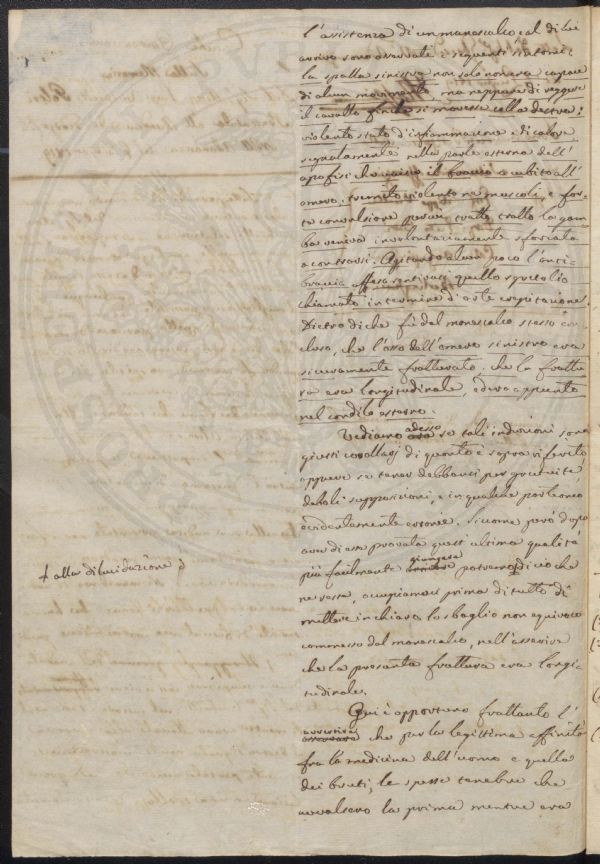 l'assistenza di un manescalco e al di lui
arrivo sono osservati i seguenti sintomi:
la spalla sinistra non solo non era capace
di alcun movimento ma neppure di reggere
il cavallo finchè si movesse colla destra:
violento stato d'infiammazione e di calore
segnatamente nella parte esterna dell'
apofisi che unisce il braccio o cubito all'
omero: tremito violento ne muscoli, e for-
te convulsione per cui tratto tratto la gam-
ba veniva involontariamente sforzata
a contrarsi. Agitando alcun poco l'anti-
braccio offeso sentivasi quello sgretolio
chiamato in termine d'arte crepitazione.
Dietro di che fù dal manescalco stesso con-
cluso, che l'osso dell'omero sinistro era
sicuramente fratturato, che la frattu-
ra era longitudinale, ed era appunto
nel condilo esterno.
Vediamo adesso se tali induzioni sono
giusti corollarj di quanto è sopra riferito
oppure se tener debbansi per gratuite,
deboli supposizioni, e in qualche parte anco
evidentemente erronee. Siccome però dopo
aver di esse provata quest'ultima qualità
più facilmente giungere potremo di ciò che
ne resta, occupiamoci prima di tutto di
mettere in chiaro lo sbaglio non equivoco
commesso dal manescalco, nell'asserire
che la presente frattura era longi-
tudinale.
+ alla dilucidazione
Qui è opportuno frattanto l'
avvertire che per la legittima affinità
fra la medicina dell'uomo e quella
dei bruti, le spesse tenebre che
avvolsero la prima mentre era